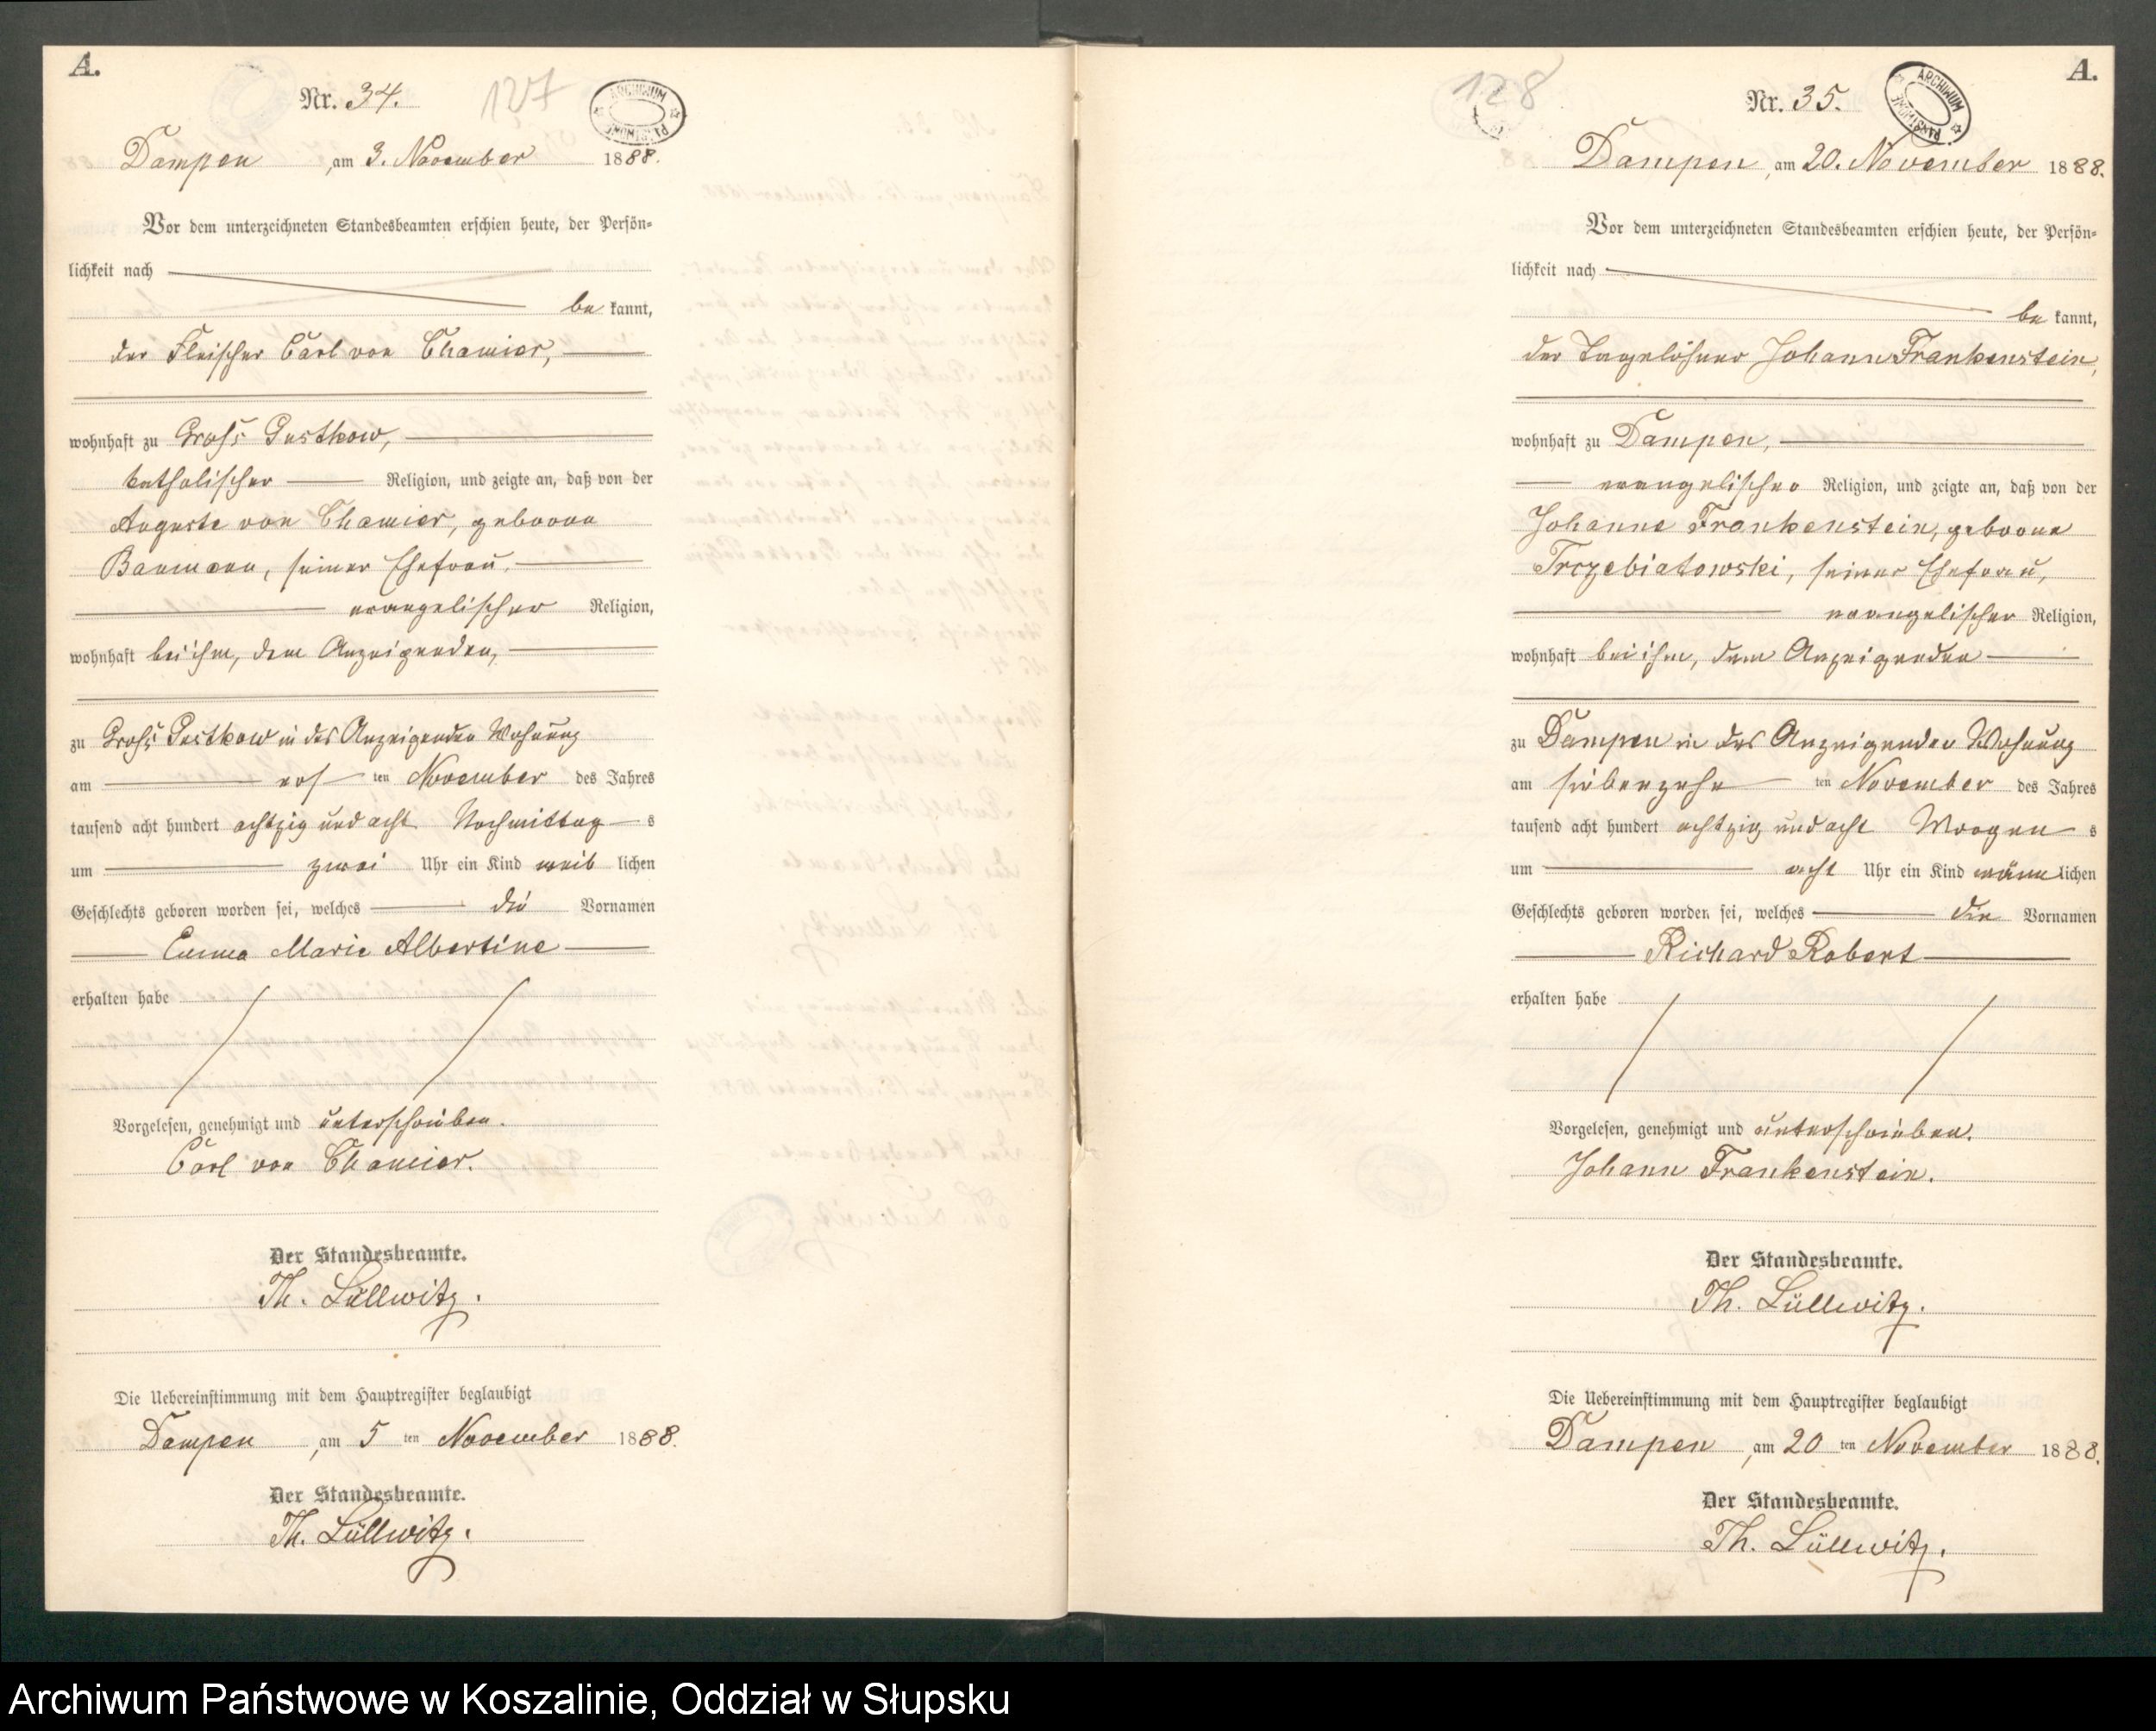 A.
Nr. 34.
127
ARCHIWUM PAŃSTWOWE
Dampen, am 3. November 1888.
Vor dem unterzeichneten Standesbeamten erschien heute, der Persön=
lichkeit nach
be kannt,
der Fleischer Carl von Chamier,
wohnhaft zu Groß Gustkow,
katholischer Religion, und zeigte an, daß von der
Auguste von Chamier, geborene
Baumann, seiner Ehefrau,
evangelischer Religion,
wohnhaft bei ihm, dem Anzeigenden,
zu Groß Gustkow in des Anzeigenden Wohnung
am ers ten November des Jahres
tausend acht hundert achtzig und acht Nachmittag s
um zwei Uhr ein Kind weib lichen
Geschlechts geboren worden sei, welches die Vornamen
Emma Marie Albertine
erhalten habe
Vorgelesen, genehmigt und unterschrieben.
Carl von Chamier.
Der Standesbeamte.
Th. Lüllwitz.
Die Uebereinstimmung mit dem Hauptregister beglaubigt
Dampen, am 5 ten November 1888.
Der Standesbeamte.
Th. Lüllwitz.
128
Nr. 35.
ARCHIWUM PAŃSTWOWE
A.
Dampen, am 20. November 1888.
Vor dem unterzeichneten Standesbeamten erschien heute, der Persön=
lichkeit nach
be kannt,
der Tagelöhner Johann Frankenstein,
wohnhaft zu Dampen,
evangelischer Religion, und zeigte an, daß von der
Johanne Frankenstein, geborene
Trzebiatowski, seiner Ehefrau,
evangelischer Religion,
wohnhaft bei ihm, dem Anzeigenden
zu Dampen in des Anzeigenden Wohnung
am siebenzehn ten November des Jahres
tausend acht hundert achtzig und acht Morgen s
um acht Uhr ein Kind männ lichen
Geschlechts geboren worden sei, welches die Vornamen
Richard Robert
erhalten habe
Vorgelesen, genehmigt und unterschrieben.
Johann Frankenstein.
Der Standesbeamte.
Th. Lüllwitz.
Die Uebereinstimmung mit dem Hauptregister beglaubigt
Dampen, am 20 ten November 1888.
Der Standesbeamte.
Th. Lüllwitz.
Archiwum Państwowe w Koszalinie, Oddział w Słupsku